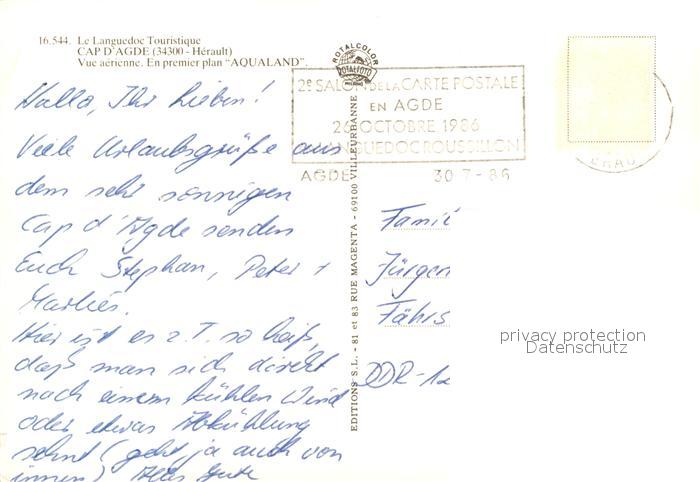 16.544. Le Languedoc Touristique
CAP D'AGDE (34300 - Hérault)
Vue aérienne. En premier plan "AQUALAND".
ROTALCOLOR
ROTALFOTO
2e SALON DE LA CARTE POSTALE
EN AGDE
26 OCTOBRE 1986
LANGUEDOC ROUSSILLON
AGDE 30-7-86
Hallo, Ihr Lieben!
Viele Urlaubsgrüße aus
dem sehr sonnigen
Cap d'Agde senden
Euch Stephan, Peter +
Marlies.
Hier ist es z.T. so heiß,
daß man sich direkt
nach einem kühlen Wind
oder etwas Abkühlung
sehnt (geht ja auch von
innen) Alles Gute
EDITIONS S.L. - 81 et 83 RUE MAGENTA - 69100 VILLEURBANNE
Famil
Jürgen
Fährs
DDR-12
privacy protection
Datenschutz